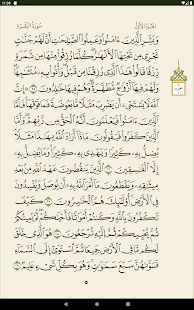 11:30
سُورَةُ البَقَرَةِ الجُزْءُ الأَوَّلُ
وَبَشِّرِ ٱلَّذِينَ ءَامَنُوا۟ وَعَمِلُوا۟ ٱلصَّـٰلِحَـٰتِ أَنَّ لَهُمْ جَنَّـٰتٍ
تَجْرِى مِن تَحْتِهَا ٱلْأَنْهَـٰرُ ۖ كُلَّمَا رُزِقُوا۟ مِنْهَا مِن ثَمَرَةٍ
رِّزْقًا ۙ قَالُوا۟ هَـٰذَا ٱلَّذِى رُزِقْنَا مِن قَبْلُ ۖ وَأُتُوا۟ بِهِۦ مُتَشَـٰبِهًا ۖ
وَلَهُمْ فِيهَآ أَزْوَٰجٌ مُّطَهَّرَةٌ ۖ وَهُمْ فِيهَا خَـٰلِدُونَ ٢٥ ۞ إِنَّ
ٱللَّهَ لَا يَسْتَحْىِۦٓ أَن يَضْرِبَ مَثَلًا مَّا بَعُوضَةً فَمَا فَوْقَهَا ۚ
فَأَمَّا ٱلَّذِينَ ءَامَنُوا۟ فَيَعْلَمُونَ أَنَّهُ ٱلْحَقُّ مِن رَّبِّهِمْ ۖ وَأَمَّا
ٱلَّذِينَ كَفَرُوا۟ فَيَقُولُونَ مَاذَآ أَرَادَ ٱللَّهُ بِهَـٰذَا مَثَلًا ۘ
يُضِلُّ بِهِۦ كَثِيرًا وَيَهْدِى بِهِۦ كَثِيرًا ۚ وَمَا يُضِلُّ بِهِۦٓ إِلَّا
ٱلْفَـٰسِقِينَ ٢٦ ٱلَّذِينَ يَنقُضُونَ عَهْدَ ٱللَّهِ مِنۢ بَعْدِ
مِيثَـٰقِهِۦ وَيَقْطَعُونَ مَآ أَمَرَ ٱللَّهُ بِهِۦٓ أَن يُوصَلَ وَيُفْسِدُونَ
فِى ٱلْأَرْضِ ۚ أُو۟لَـٰٓئِكَ هُمُ ٱلْخَـٰسِرُونَ ٢٧ كَيْفَ
تَكْفُرُونَ بِٱللَّهِ وَكُنتُمْ أَمْوَٰتًا فَأَحْيَـٰكُمْ ۖ ثُمَّ يُمِيتُكُمْ
ثُمَّ يُحْيِيكُمْ ثُمَّ إِلَيْهِ تُرْجَعُونَ ٢٨ هُوَ ٱلَّذِى خَلَقَ
لَكُم مَّا فِى ٱلْأَرْضِ جَمِيعًا ثُمَّ ٱسْتَوَىٰٓ إِلَى ٱلسَّمَآءِ
فَسَوَّىٰهُنَّ سَبْعَ سَمَـٰوَٰتٍ ۚ وَهُوَ بِكُلِّ شَىْءٍ عَلِيمٌ ٢٩
٥